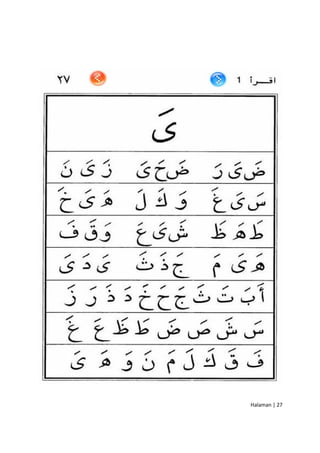 اقـــرأ ١ ٢٧
یَ
ضَ یَ رَ ضَ حَ یَ زَ یَ نَ
سَ یَ غَ وَ كَ لَ هَ یَ خَ
طَ هَ ظَ شَ یَ عَ وَ قَ فَ
هَ یَ مَ جَ ذَ ثَ یَ دَ یَ
أَ بَ تَ ثَ جَ حَ خَ دَ ذَ رَ زَ
سَ شَ صَ ضَ طَ ظَ عَ غَ
فَ قَ كَ لَ مَ نَ وَ هَ یَ
Halaman | 27